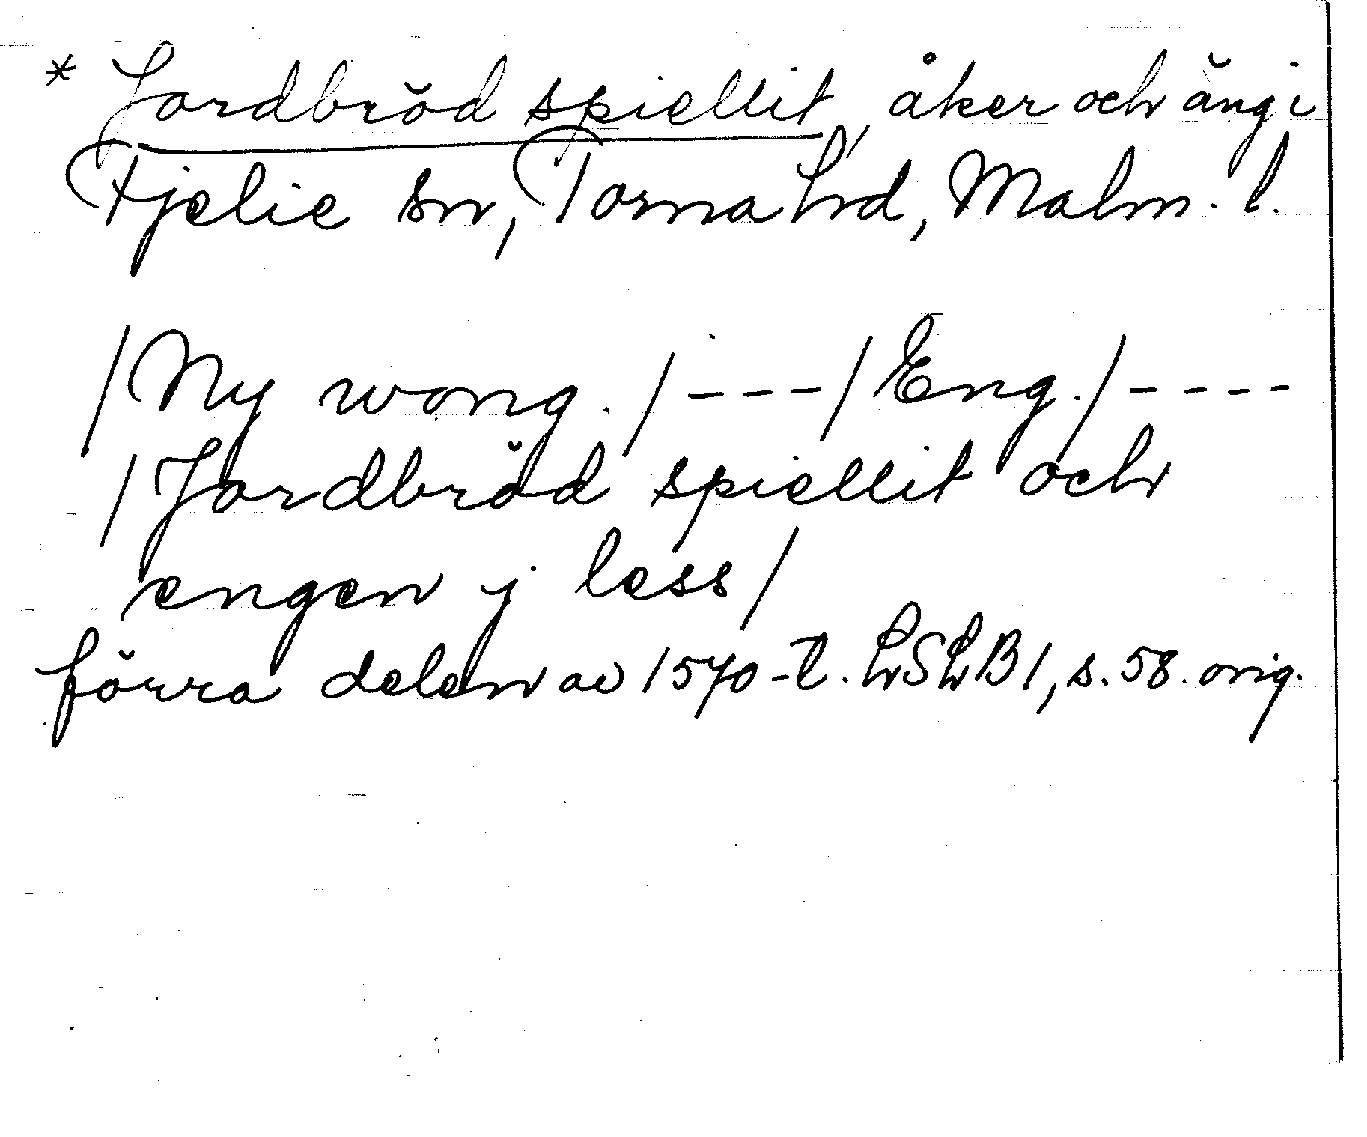 * Jordbröd spiellit, åker och äng i
Fjelie sn, Torna hd, Malm. l.
/Ny wong./---/Eng./----
/Jordbröd spiellit och
engen j less/
förra delen av 1570-t. LSLB1, s. 58. orig.